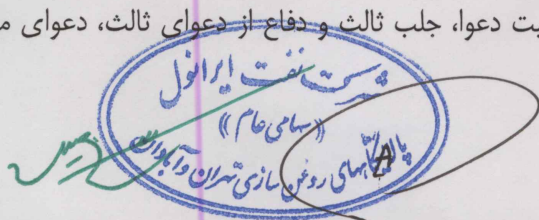 بت دعوا، جلب ثالث و دفاع از دعوای ثالث، دعوای م
شرکت نفت ایرانول
(سهامی عام))
پالایشگاههای روغن سازی تهران و آبادان